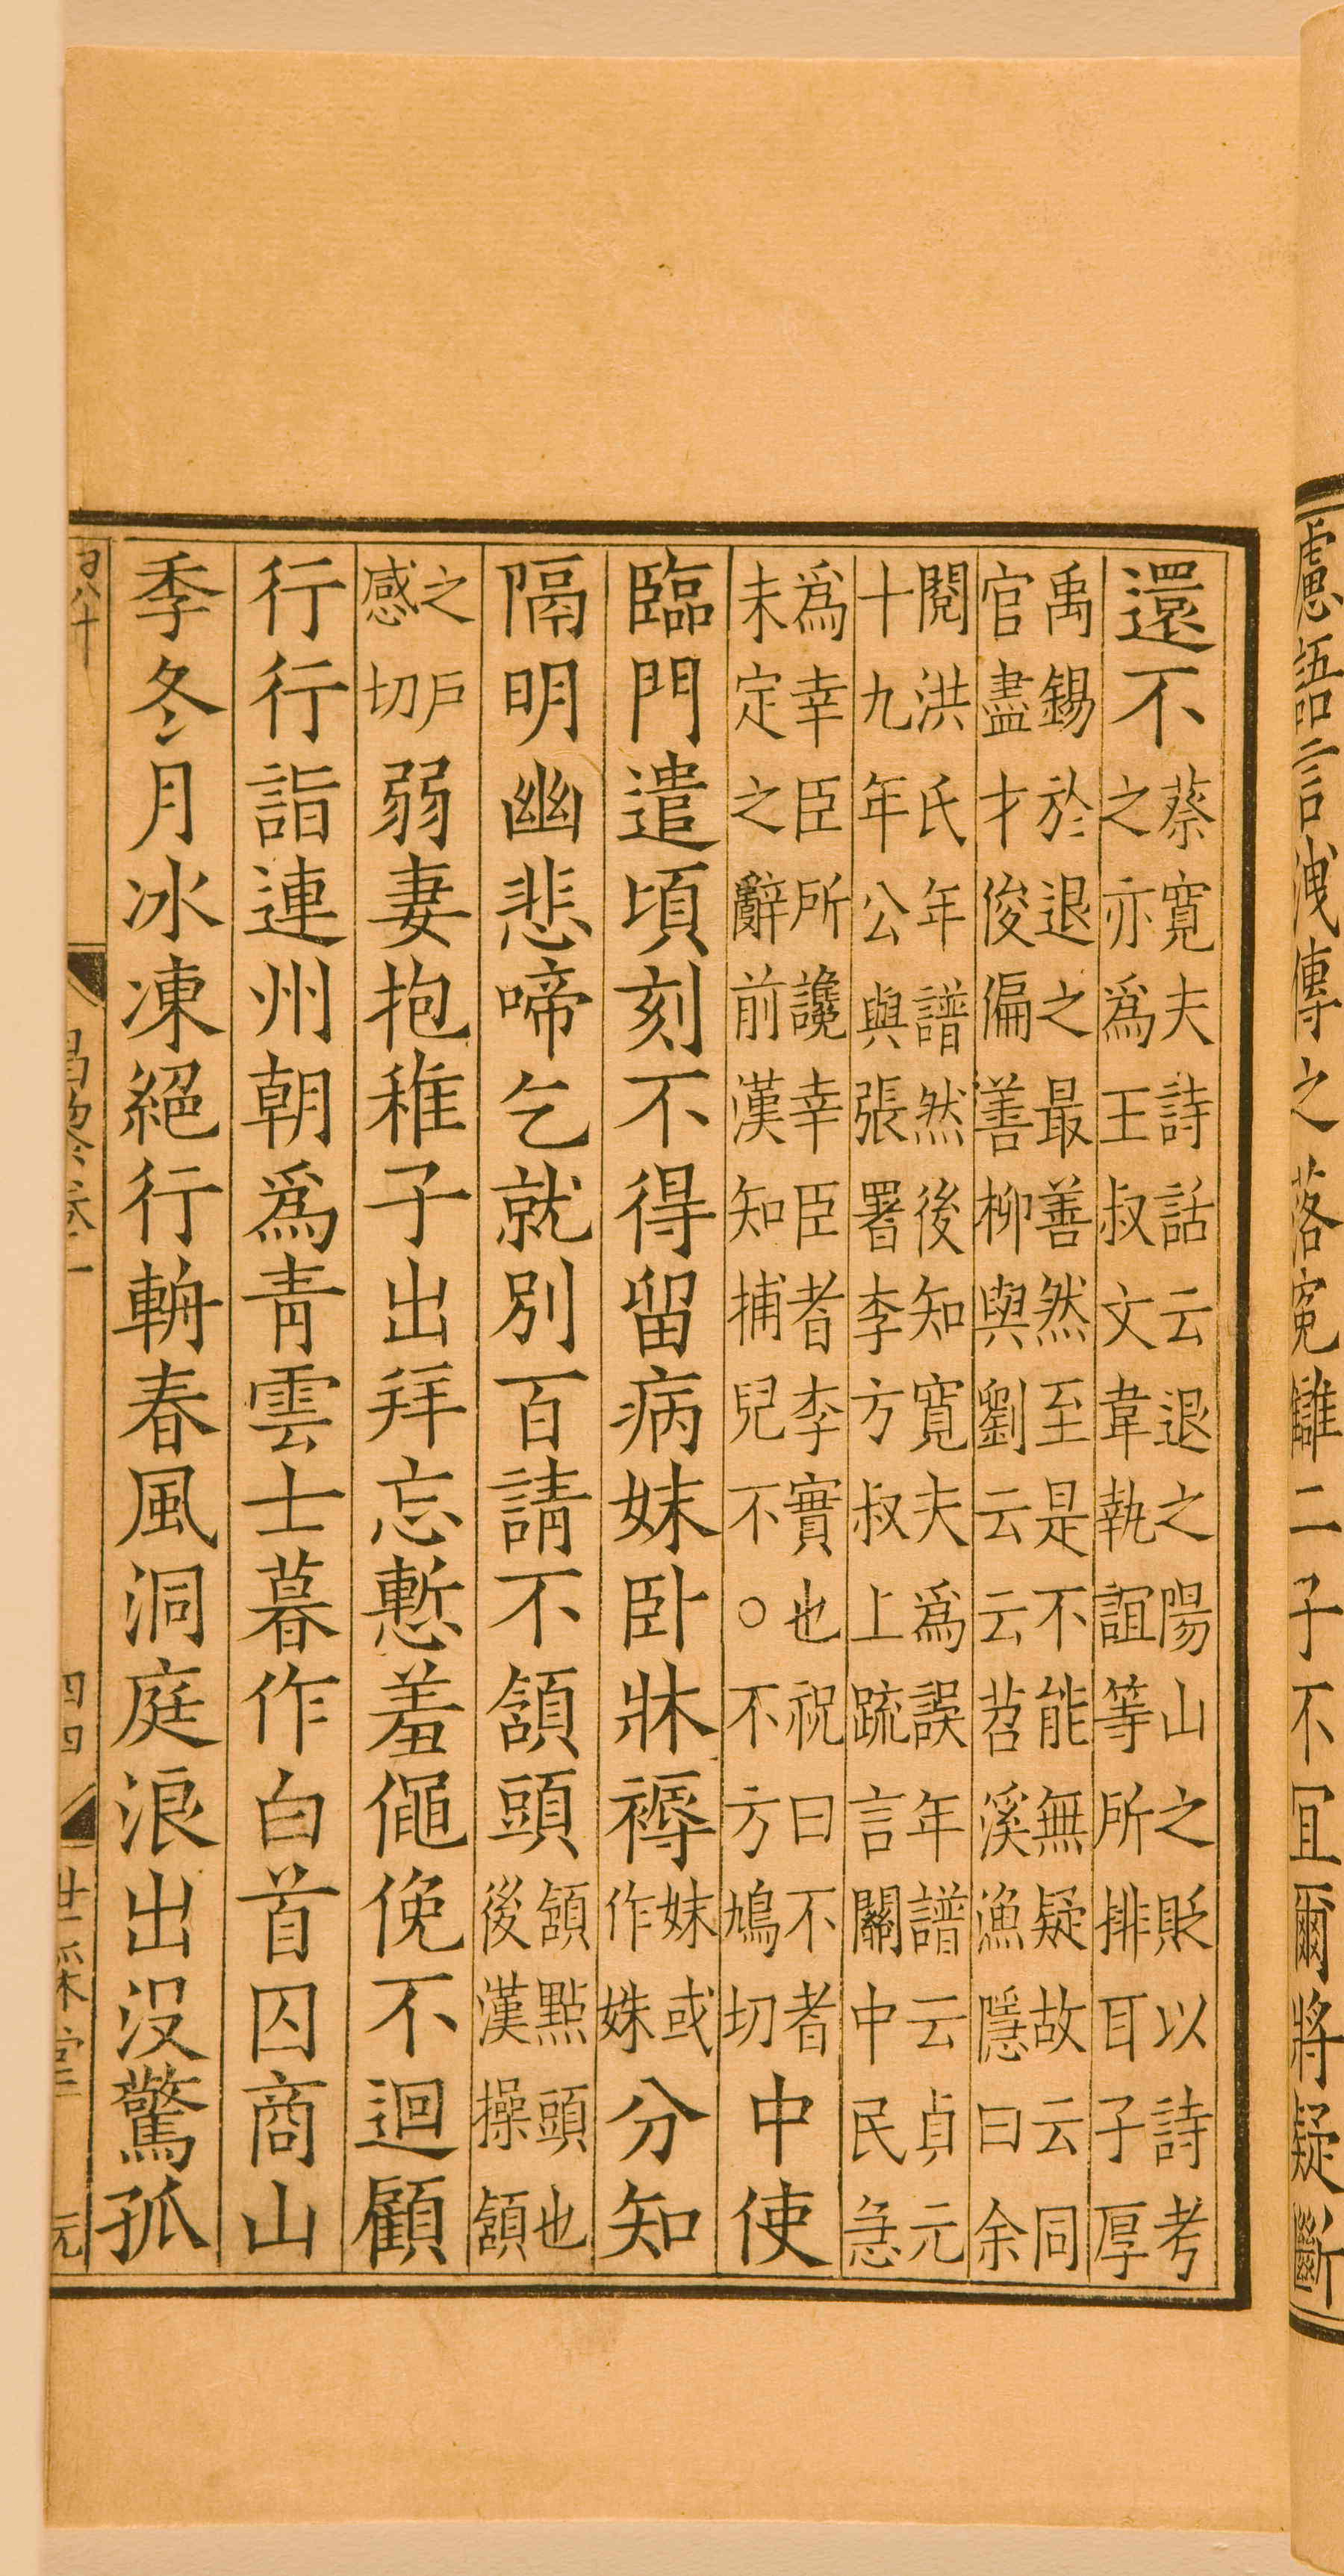 慮語言洩傳之落冤讎二子不宜爾將疑斷
還不
蔡寬夫詩話云退之陽山之貶以詩考
之亦爲王叔文韋執誼等所排耳子厚
禹錫於退之最善然至是不能無疑故云同
官盡才俊偏善柳與劉云云苕溪漁隱曰余
閱洪氏年譜然後知寬夫爲誤年譜云貞元
十九年公與張署李方叔上疏言關中民急
爲幸臣所讒幸臣者李實也祝曰不者
未定之辭前漢知捕兒不○不方鳩切
中使
臨門遣頃刻不得留病妹臥牀褥
妹或
作姝
分知
隔明幽悲啼乞就別百請不頷頭
頷點頭也
後漢操頷
之戶
感切
弱妻抱稚子出拜忘慙羞僶俛不迴顧
行行詣連州朝爲青雲士暮作白首囚商山
季冬月冰凍絕行輈春風洞庭浪出沒驚孤
昌黎卷一